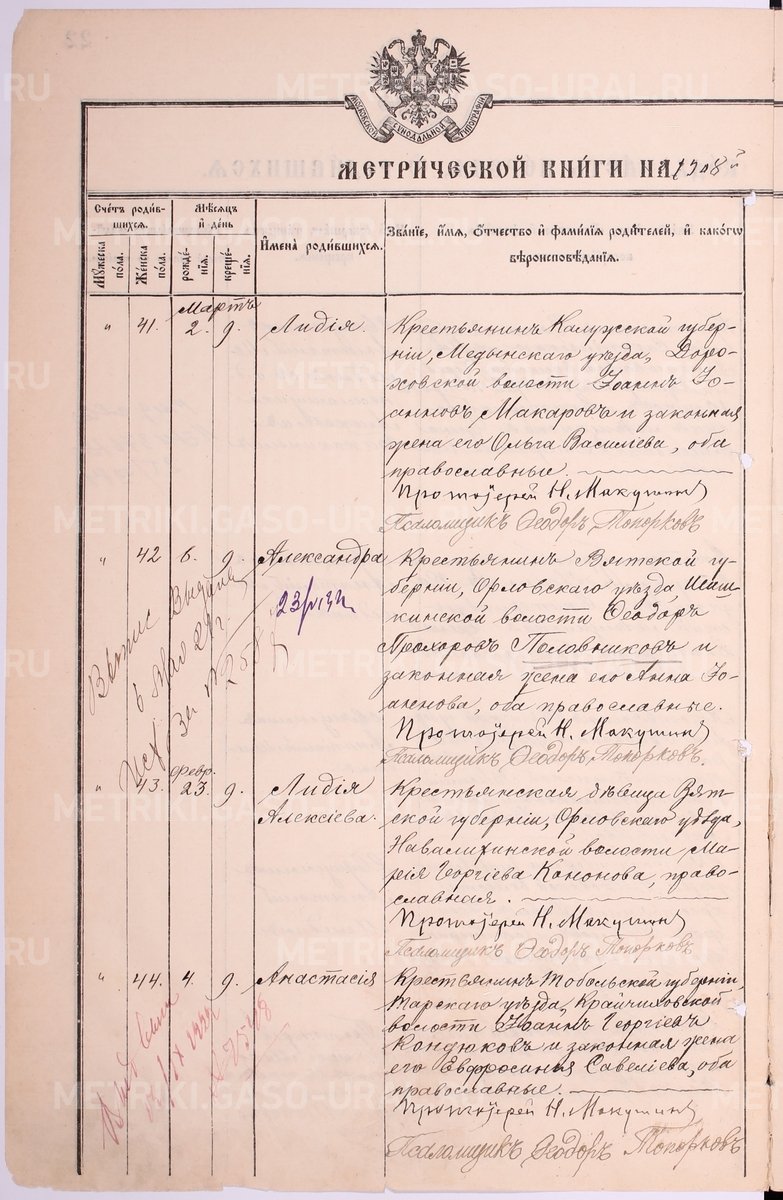 МОСКОВСКОЙ СУНОДАЛЬНОЙ ТИПОГРАФІИ
МЕТРИ́ЧЕСКОЙ КНИ́ГИ НА 1908 й
Сче́тъ роди́в-
шихся.
Мѣ́сяцъ
и҆ де́нь
Мꙋ́жеска
по́ла.
Же́нска
по́ла.
рожде́-
нїѧ.
креще́-
нїѧ.
И҆мена̀ роди́вшихсѧ.
Зва́нїе, и҆́мѧ, ѻ҆́тчество и҆ фами́лїѧ роди́телей, и҆ како́гѡ
вѣроисповѣ́данїѧ.
Мартъ
" 41. 2. 9. Лидія.
Крестьянинъ Калужской губер-
ніи, Медынскаго уѣзда, Доро-
ховской волости Іоаннъ Іо-
анновъ Макаровъ и законная
жена его Ольга Василіева, оба
православные.
Протоіерей Н. Макушинъ
Псаломщикъ Ѳеодоръ Топорковъ
" 42 6. 9. Александра
Крестьянинъ Вятской гу-
берніи, Орловскаго уѣзда,
кинской волости Ѳеодоръ
Прохоровъ Половниковъ и
законная жена его Анна Іо-
аннова, оба православные.
Протоіерей Н. Макушинъ
Псаломщикъ Ѳеодоръ Топорковъ.
Выпис Выдана
6 мая 29 г.
за № 2588
Февр.
" 43. 23. 9. Лидія
Алексіева.
Крестьянская дѣвица Вят-
ской губерніи, Орловскаго уѣзда,
Навалихинской волости Ма-
рія Георгіева Кононова, право-
славная.
Протоіерей Н. Макушинъ
Псаломщикъ Ѳеодоръ Топорковъ
" 44. 4. 9. Анастасія
Крестьянинъ Тобольской губерніи,
Тарскаго уѣзда, Крайчиковской
волости Іоаннъ Георгіевъ
Кондюковъ и законная жена
его Евфросинія Савеліева, оба
православные.
Протоіерей Н. Макушинъ
Псаломщикъ Ѳеодоръ Топорковъ
METRIKI.GASO-URAL.RU